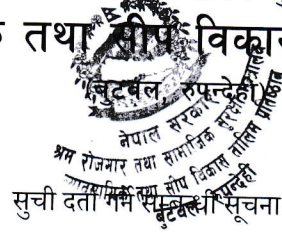 तथा सीप विकास
(बुटवल, रुपन्देही)
नेपाल सरकार
श्रम रोजगार तथा सामाजिक सुरक्षा
तथा सीप विकास तालिम प्रतिष्ठान
बुटवल रुपन्देही
सुची दर्ता गर्ने सम्बन्धी सूचना